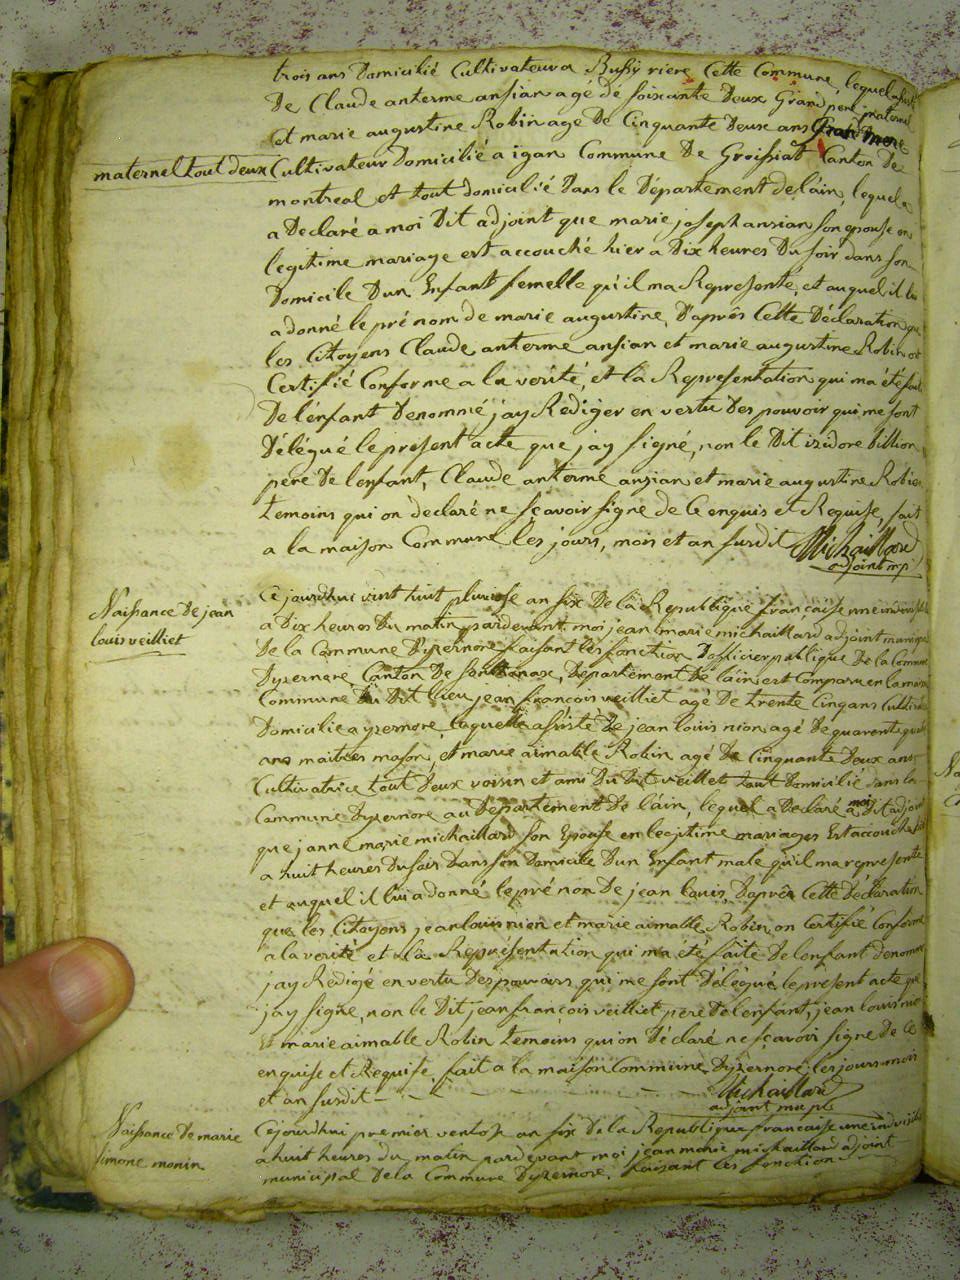 trois ans Domicilié Cultivateur a Bussy riere Cette Commune, lequel assisté
De Claude anterme ansian agé de soixante Deux Grand pere paternel
et marie augustine Robin age De Cinquante Deux ans Grand mere
maternel tout deux Cultivateur Domicilié a igan Commune De Groissiat Canton De
montreal et tout domicilié Dans le Département de l'ain, lequel
a Declaré a moi Dit adjoint que marie joseph ansian son epouse en
legitime mariage est accouché hier a Dix heures Du soir dans son
Domicile D'un Enfant femelle qu'il ma Representé, et auquel il lui
a donné le pré nom de marie augustine, D'après Cette Déclaration que
les Citoyens Claude anterme ansian et marie augustine Robin ont
Certifié Conforme a la verité, et la Representation qui ma été faite
De l'enfant Denommé jay Rédiger en vertu Des pouvoir qui me sont
Délégué le present acte que jay signé, non le Dit izidore billion
pere De l'enfant, Claude anterme ansian et marie augustine Robin
temoins qui on declaré ne sçavoir signé de Ce enquis et Requise, fait
a la maison Commune les jours, mois et an susdit Michaillard
adjoint mpl
Naissance De jean
louis veilliet
Ce jourdhui vint huit pluviose an six De la Republique française une indivisible
a Dix heures Du matin pardevant moi jean marie michaillard adjoint municipal
De la Commune Dyzernore faisant les fonction D'officier publique De la Commune
Dyzernore Canton De Sonthonax, Departement De l'ain est Comparu en la maison
Commune Du Dit lieu, jean françois veilliet agé De trente Cinq ans Cultivateur
Domicilie a yzernore, laquelle assisté De jean louis nion agé De quarente quatre
ans maitres mason, et marie aimable Robin agé De Cinquante Deux ans
Cultivatrice tout Deux voisin et ami Du Dit veilliet tout Domicilié dans la
Commune Dyzernore au Département De l'ain, lequel a Declaré a moi Dit adjoint
que janne marie michaillard son Epouse en legitime mariages Est accouché
a huit heures Du soir Dans son Domicile D'un Enfant male qu'il ma representé
et auquel il lui a donné le pré non De jean louis, D'après Cette Déclaration
que les Citoyens jean louis nion et marie aimable Robin on Certifié Conforme
a la verité et la Representation qui ma été faite De l'enfant denommé
jay Redigé en vertu Des pouvoirs qui me sont Délégué le present acte que
jay signe, non le Dit jean françois veilliet pere De l'enfant, jean louis nion
Et marie aimable Robin temoins qui on Déclaré ne sçavoir signe De Ce
enquise et Requise, fait a la maison Commune Dyzernore les jours mois
et an susdit Michaillard
adjoint mupl
Naissance De marie
simone monin
Cejourdhui premier ventose an six De la Republique francaise une indivisible
a huit heures du matin pardevant moi jean marie michaillard adjoint
municipal De la Commune Dyzernore, faisant les fonction